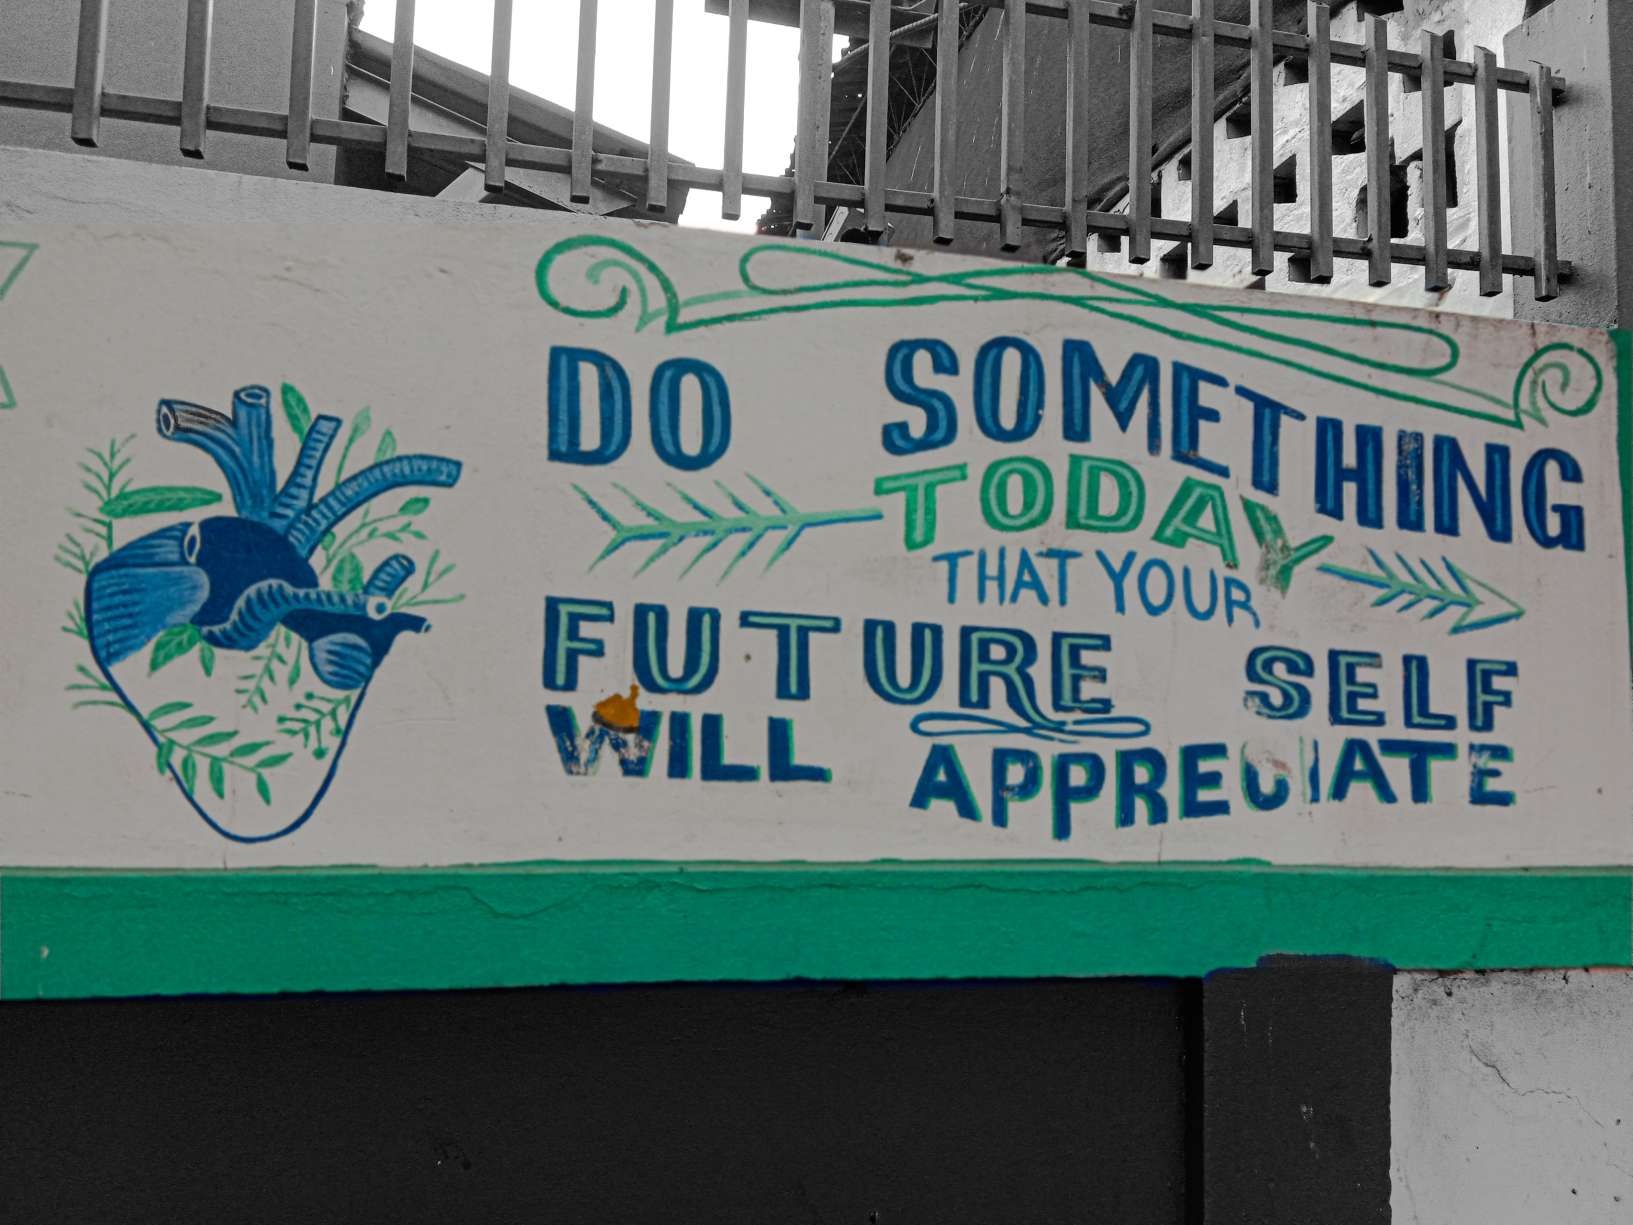 DO SOMETHING
TODAY
THAT YOUR
FUTURE SELF
WILL APPRECIATE